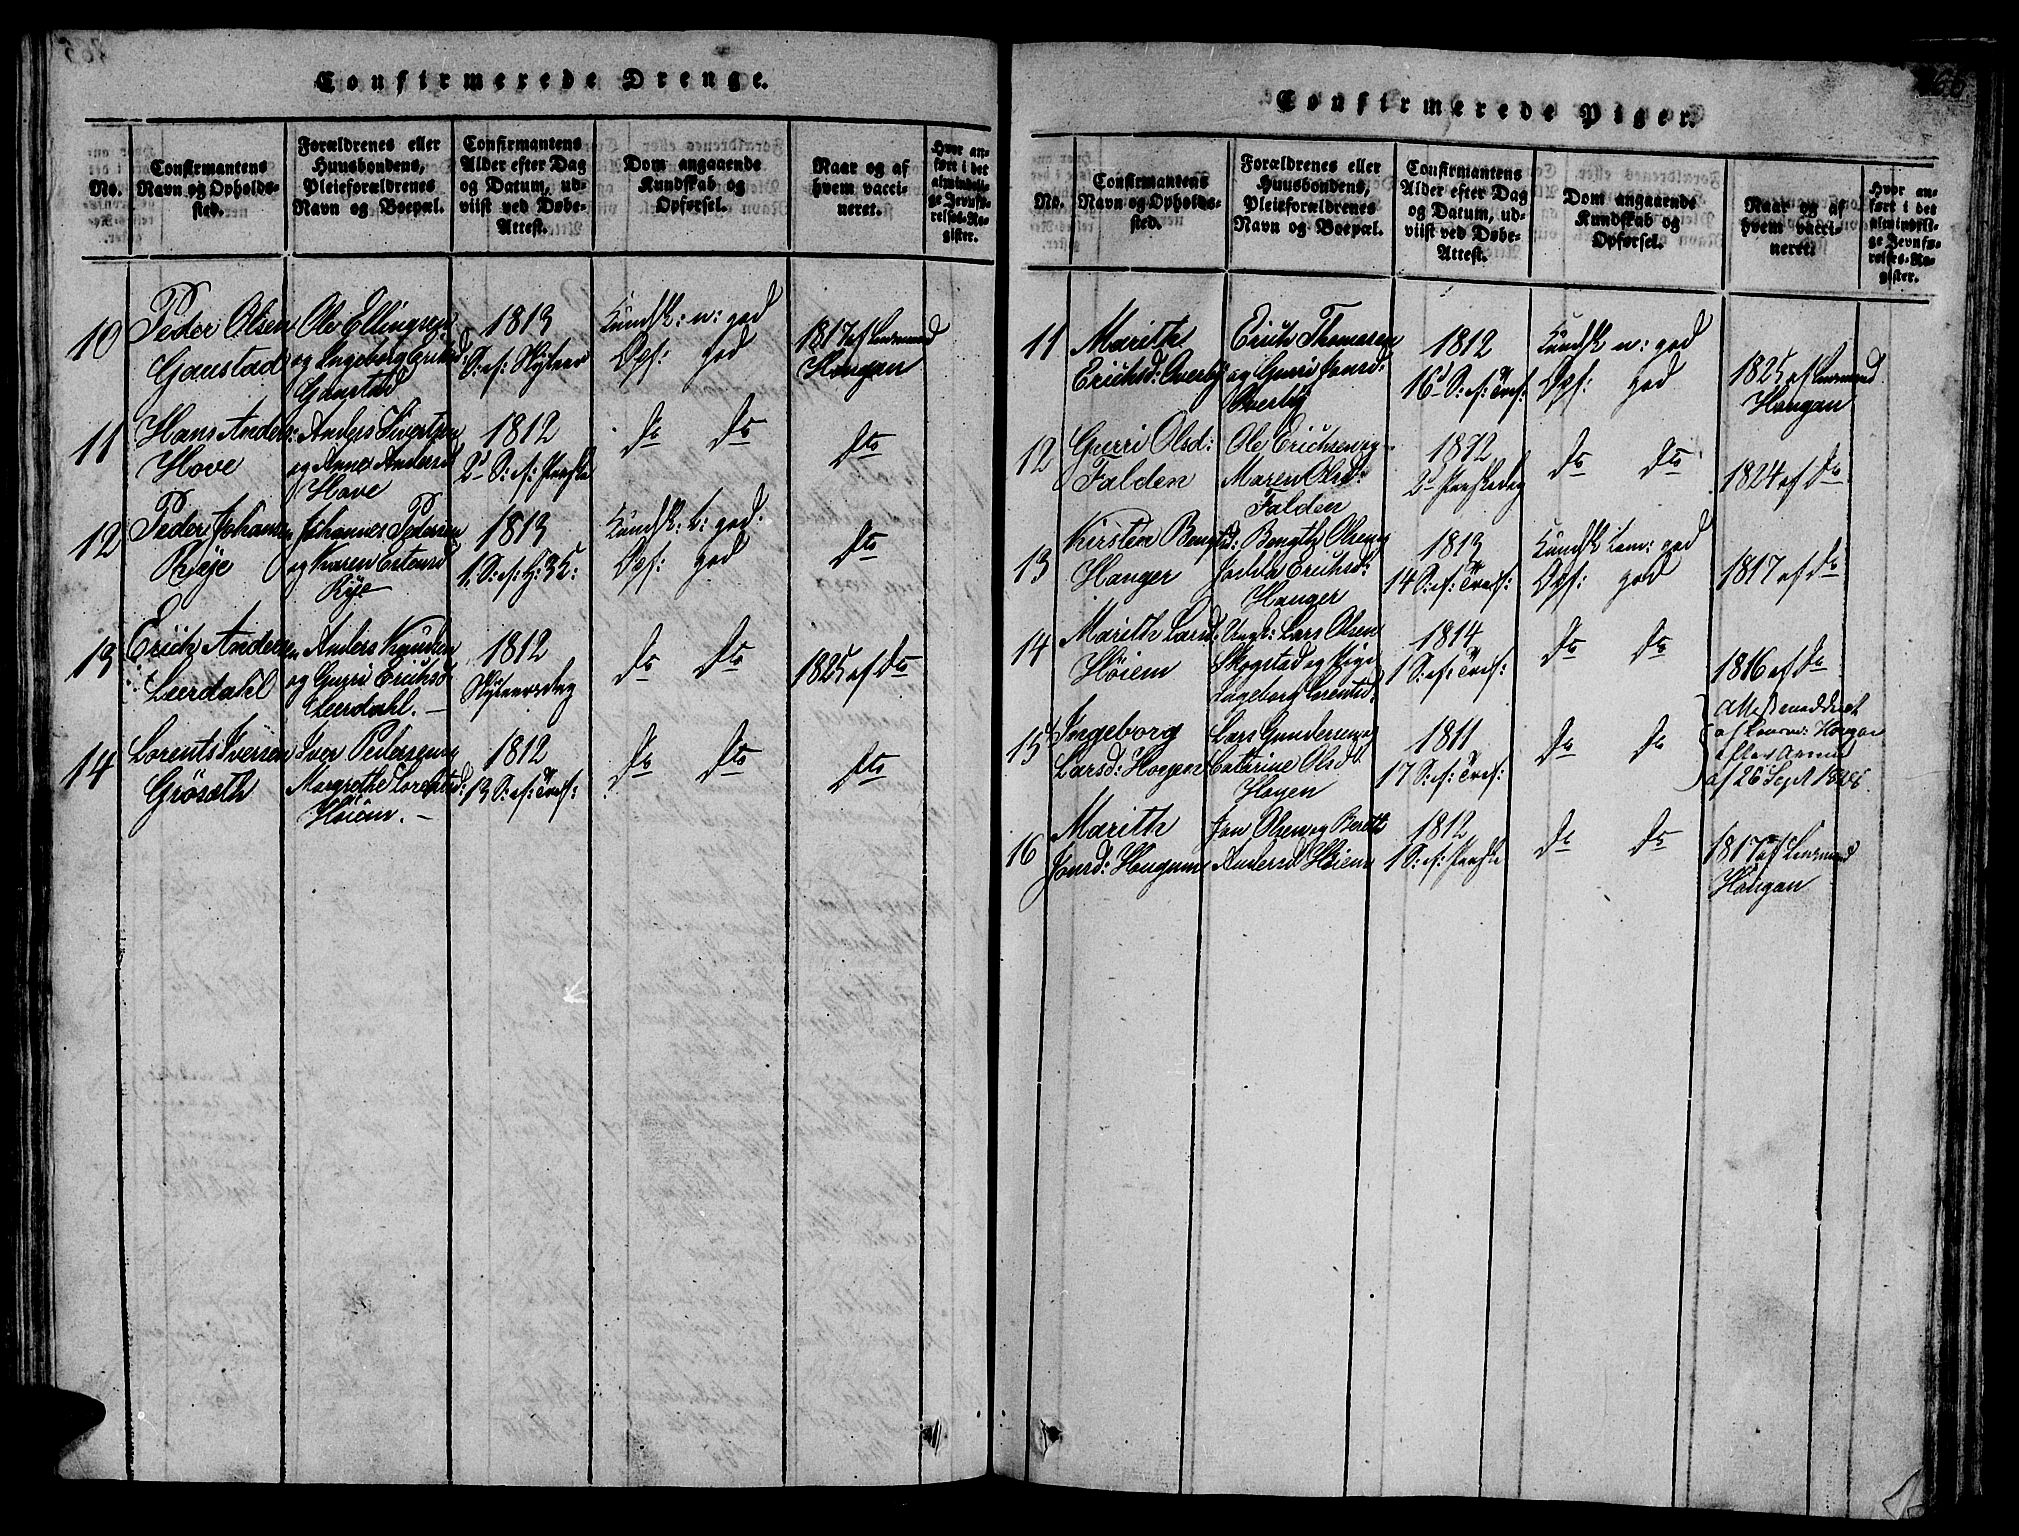 Confirmerede Drenge.
No.
Confirmantens
Navn og Opholds-
sted.
Forældrenes eller
Huusbondens,
Pleieforældrenes
Navn og Boepæl.
Confirmantens
Alder efter Dag
og Datum, ud-
viist ved Døbe-
Attest.
Dom angaaende
Kundskab og
Opførsel.
Naar og af
hvem vacci-
neret.
Hvor an-
ført i det
almindeli-
ge Jevnfø-
relses-Re-
gister.
10
Peder Olsen
Gaustad
Ole Ellingsen
og Ingeborg
Gaustad
1813
S: ef: Nytaar
Kundsk: n: god
Opf: god
1817 af Lensmand
Hougan
11
Hans Anders:
Hove
Anders Sivertsen
og Anne Andersd
Hove
1812
2d S: ef: Paaske
do do
dto
12
Peder Johansen
Røje
Johannes Pedersen
og Karen Estensd
Røje
1813
1. S: ef: H: 3 K:
Kundsk: t: god.
Opf: god
dto
13
Erich Andersen
Leerdahl
Anders Knudsen
og Gurri Erichsd:
Leerdahl. —
1812
Nytaarsdag
do do
1825 af dto
14
Lorents Iversen
Grøsæth
Iver Pedersen og
Margrethe Lorentsd:
Høiem. —
1812
13 S: ef: Tref:
do dto
dto
Confirmerede Piger.
No.
Confirmantens
Navn og Opholds-
sted.
Forældrenes eller
Huusbondens,
Pleieforældrenes
Navn og Boepæl.
Confirmantens
Alder efter Dag
og Datum, ud-
viist ved Døbe-
Attest.
Dom angaaende
Kundskab og
Opførsel.
Naar og af
hvem vacci-
neret.
Hvor an-
ført i det
almindeli-
ge Jevnfø-
relses-Re-
gister.
11
Marith
Erichsd: Overby
Erich Thomesen
og Gurri Jonsd:
Overby
1812
16d S: ef: Tref:
Kundsk n: god
Opf: god
1825 af Lensmand
Hougan
12
Gurri Olsd:
Falden
Ole Erichsen og
Maren Olsd:
Falden
1812
2d Paaskedag
do dto
1824 af do
13
Kirsten Bengtsd:
Hanger
Bengt Olsen og
Erichsd:
Hanger
1813
14 S: ef: Tref:
Kundsk tem: god
Opf: god
1817 af do
14
Marith Larsd:
Høiem
Ungk: Lars Olsen
Skogstad og Pige
Ingeborg Lorentsd:
1814
1 S: ef: Tref:
do do
1816 af do
15
Ingeborg
Larsd: Hogen
Lars Gundersen og
Catarine Olsd:
Hogen
1811
17 S: ef: Tref:
do do
af Lensm: Hougan
efter
af 26 Sept 1826.
16
Marith
Jonsd: Hougum
Jon Olsen og Berett
Andersd Høiem
1812
1 S: ef: Paaske
do do
1817 af Lensmand
Hougan